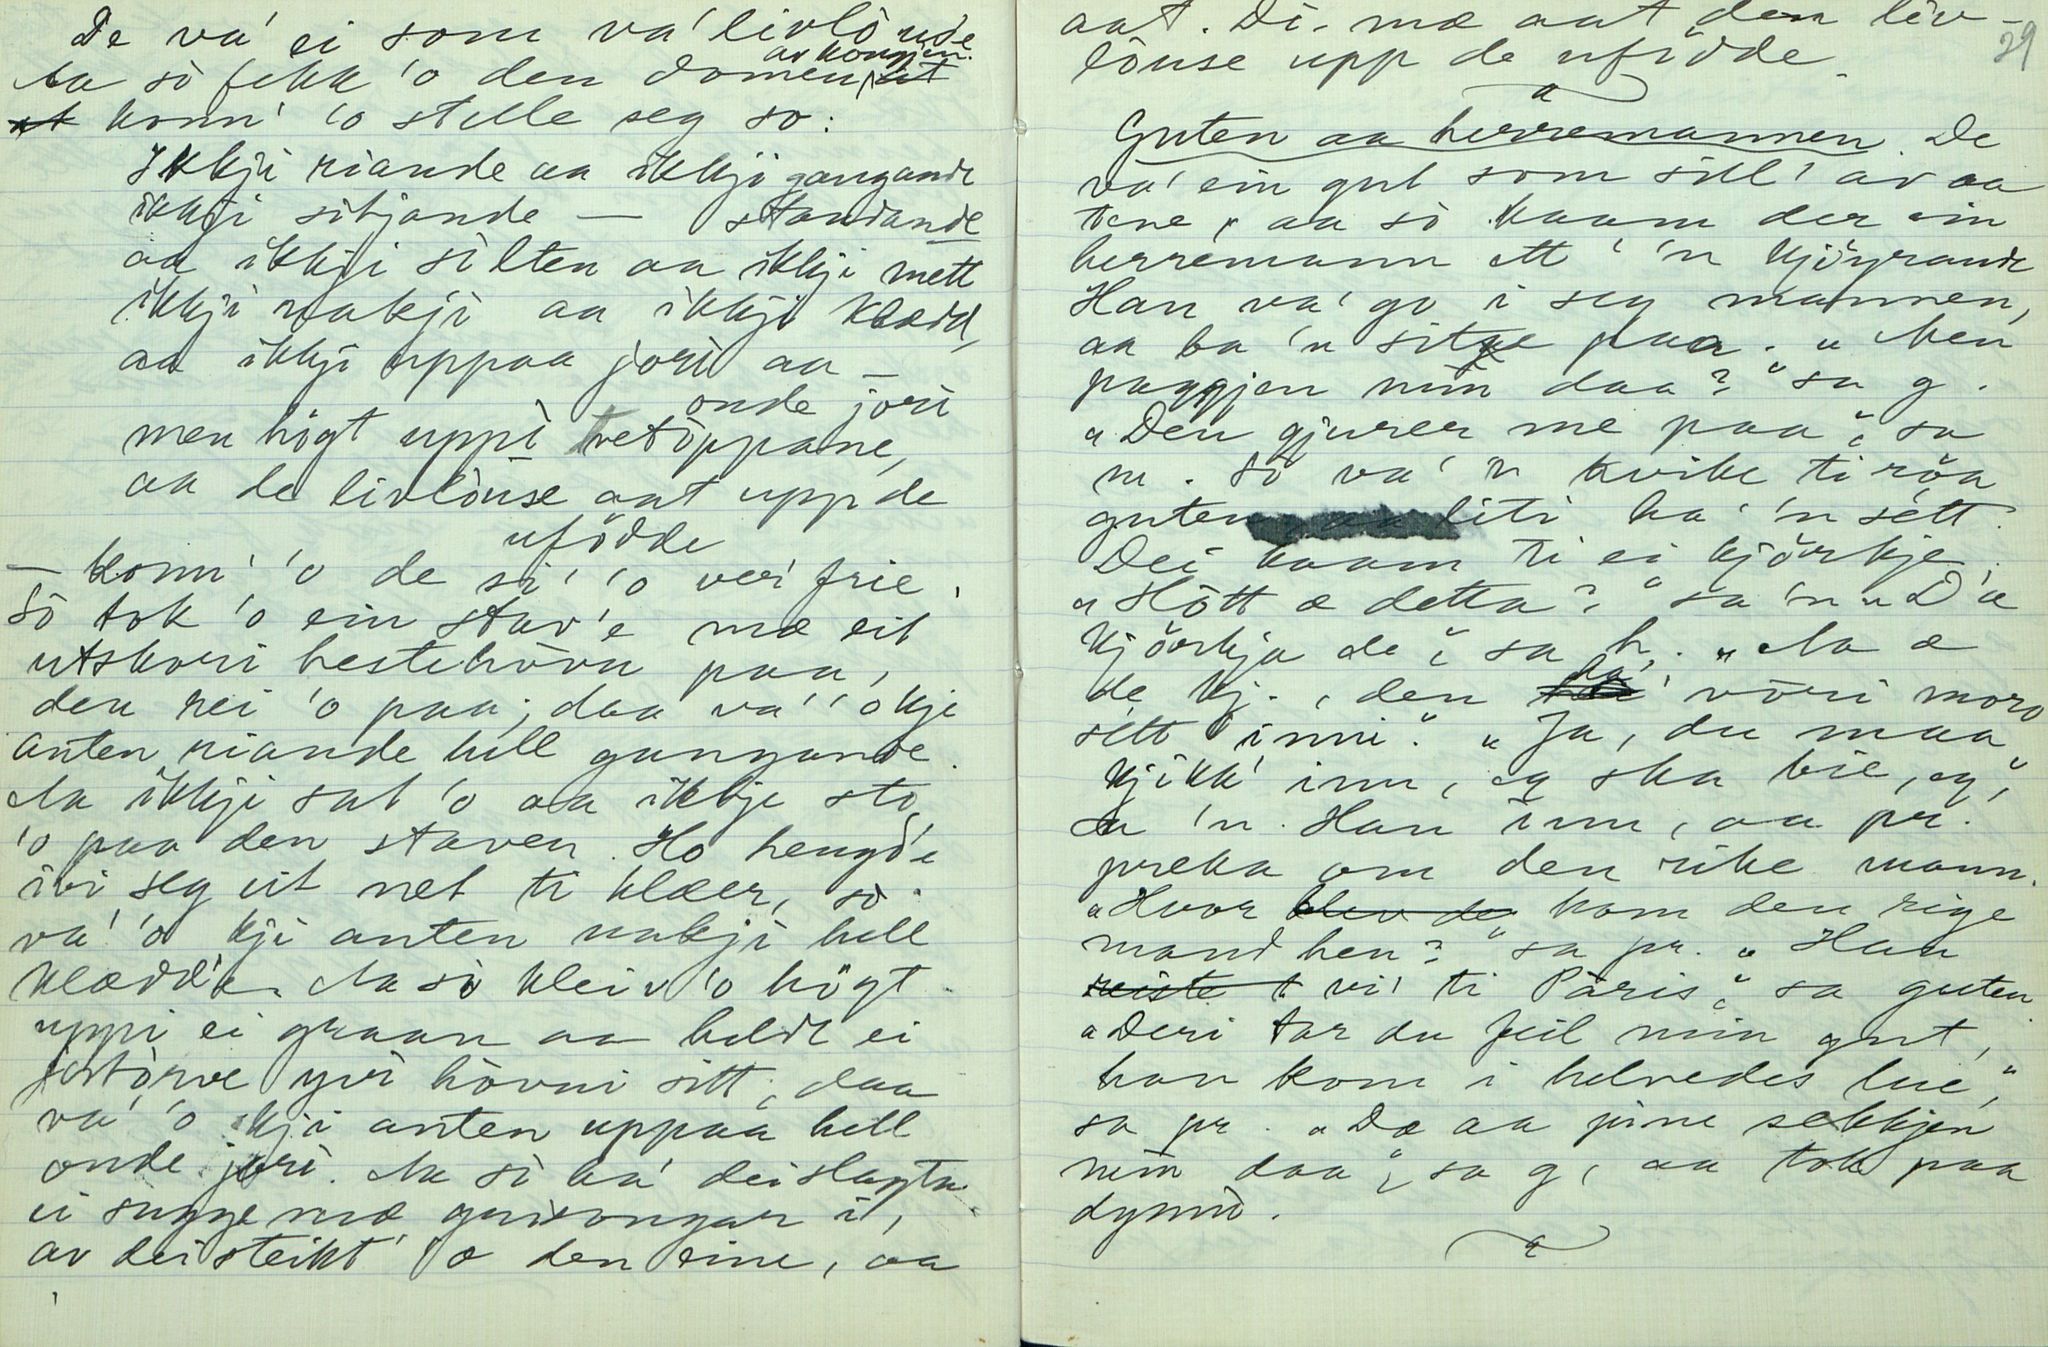 De va' ei som va' livlö nde
av kongjen.
Aa sò fekk 'o den domen, at
at konn' 'o stelle seg so:
Ikkji riande aa ikkji gangande
ikkji sitjande — standande
aa ikkji sìlten aa ikkji mett
ikkji nakji aa ikkji klædd,
aa ikkji uppaa jori aa —
onde jori
men högt uppi tretòppane,
aa de livlöuse aat upp de
ufödde
— konn' 'o de si' 'o ver' frie.
Sò tok 'o ein stav'e mæ eit
utskori hestehòvu paa,
den rei 'o paa; daa va' 'o kje
anten riande hell gangande.
Aa ikkji sat 'o aa ikkje sto
'o paa den staven. Ho hengd'e
ivi seg eit net ti klæer, sò
va' 'o kji anten nakji hell
klædd'e. Aa sò kleiv 'o högt
uppi ei graan aa heldt ei
jortòrve yvi hòvui sitt; daa
va' 'o kji anten uppaa hell
onde jori. Aa sò ha' dei slagta
ei sugge mæ grisongar i,
av dei steikt' 'o den eine, aa
aat. Di. mæ aat den liv-
löuse upp de ufödde.
29
Guten aa herremannen. De
va' ein gut som sill' av aa
tene, aa sò kaam der ein
herremann ett' 'n kjöyrande
Han va' go i seg mannen,
aa ba 'n sitje paa. „Men
paggjen min daa?" sa g.
„Den gjurer me paa", sa
m. Sò va' 'n kvike ti röa
guten, aa liti ha' 'n sétt.
Dei kaam ti ei kjörkje.
„Hòtt æ detta?" sa 'n „D'æ
kjörkja de", sa h. „Aa æ
de kj., den ha' vòri moro
sétt inni." „Ja, du maa
kjikk' inn, eg ska bie, eg",
sa 'n. Han inn, aa pr.
preka om den rike mann.
„Hvor blev de kom den rige
mand hen?" sa pr. „Han
reiste t vi' ti Päris", sa guten.
„Deri tar du feil min gut,
han kom i helvedes lue,"
sa pr. „Dæ aa pine sekkjen
min daa", sa g, aa tok paa
dynnò.